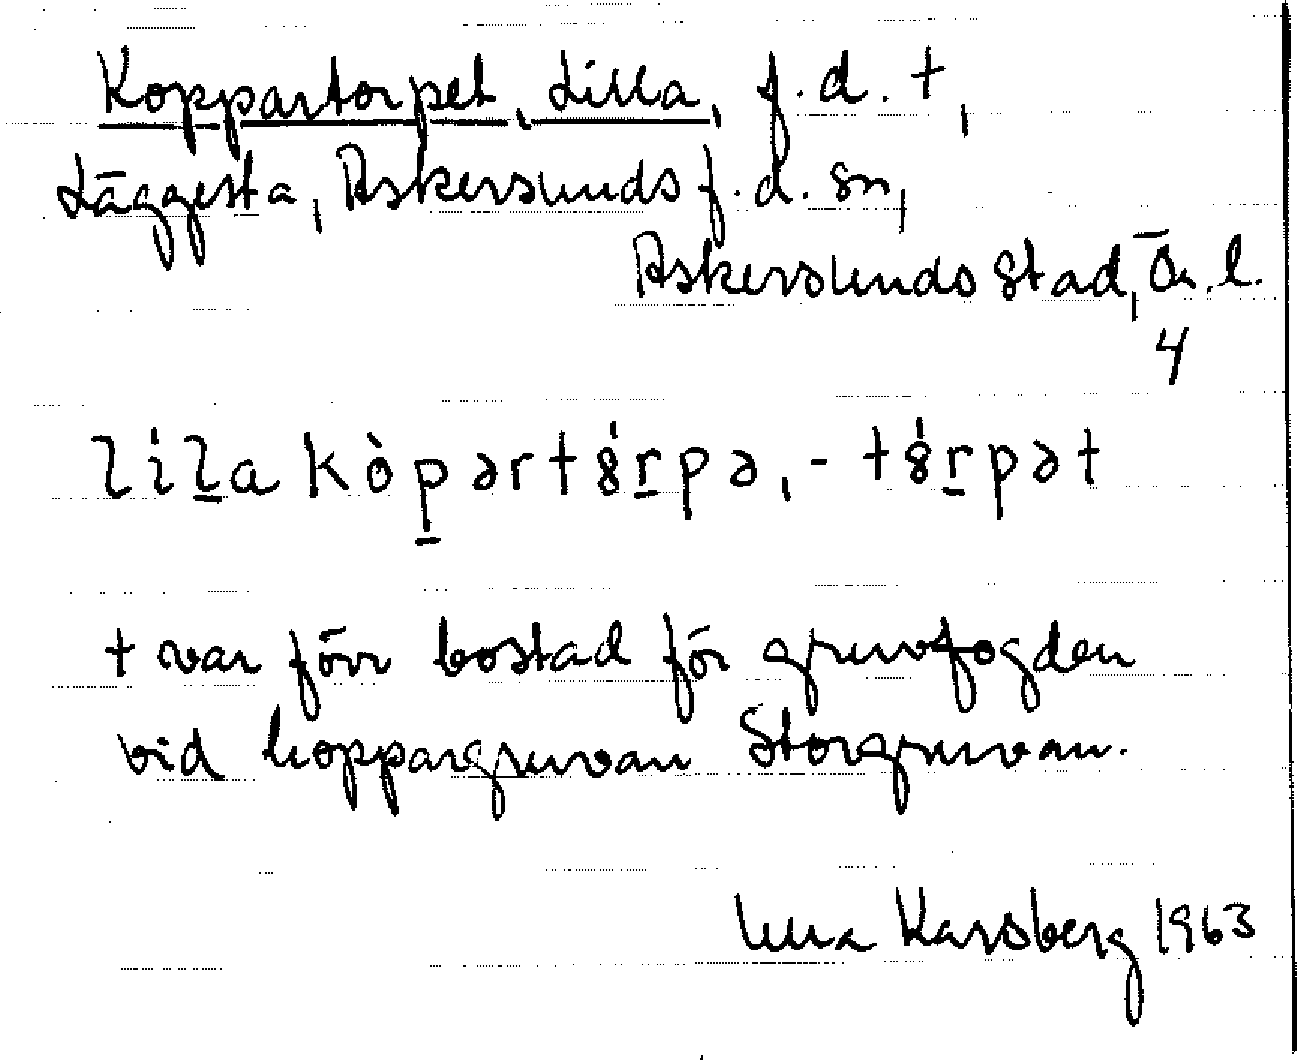 Koppartorpet, Lilla, f.d. t,
Läggesta, Askersunds f.d. sn,
Askersunds stad, Ör. l.
4
lila kòpərtȣ́rpə, - tȣ́rpət
t var förr bostad för gruvfogden
vid koppargruvan Storgruvan.
Karsberg 1963